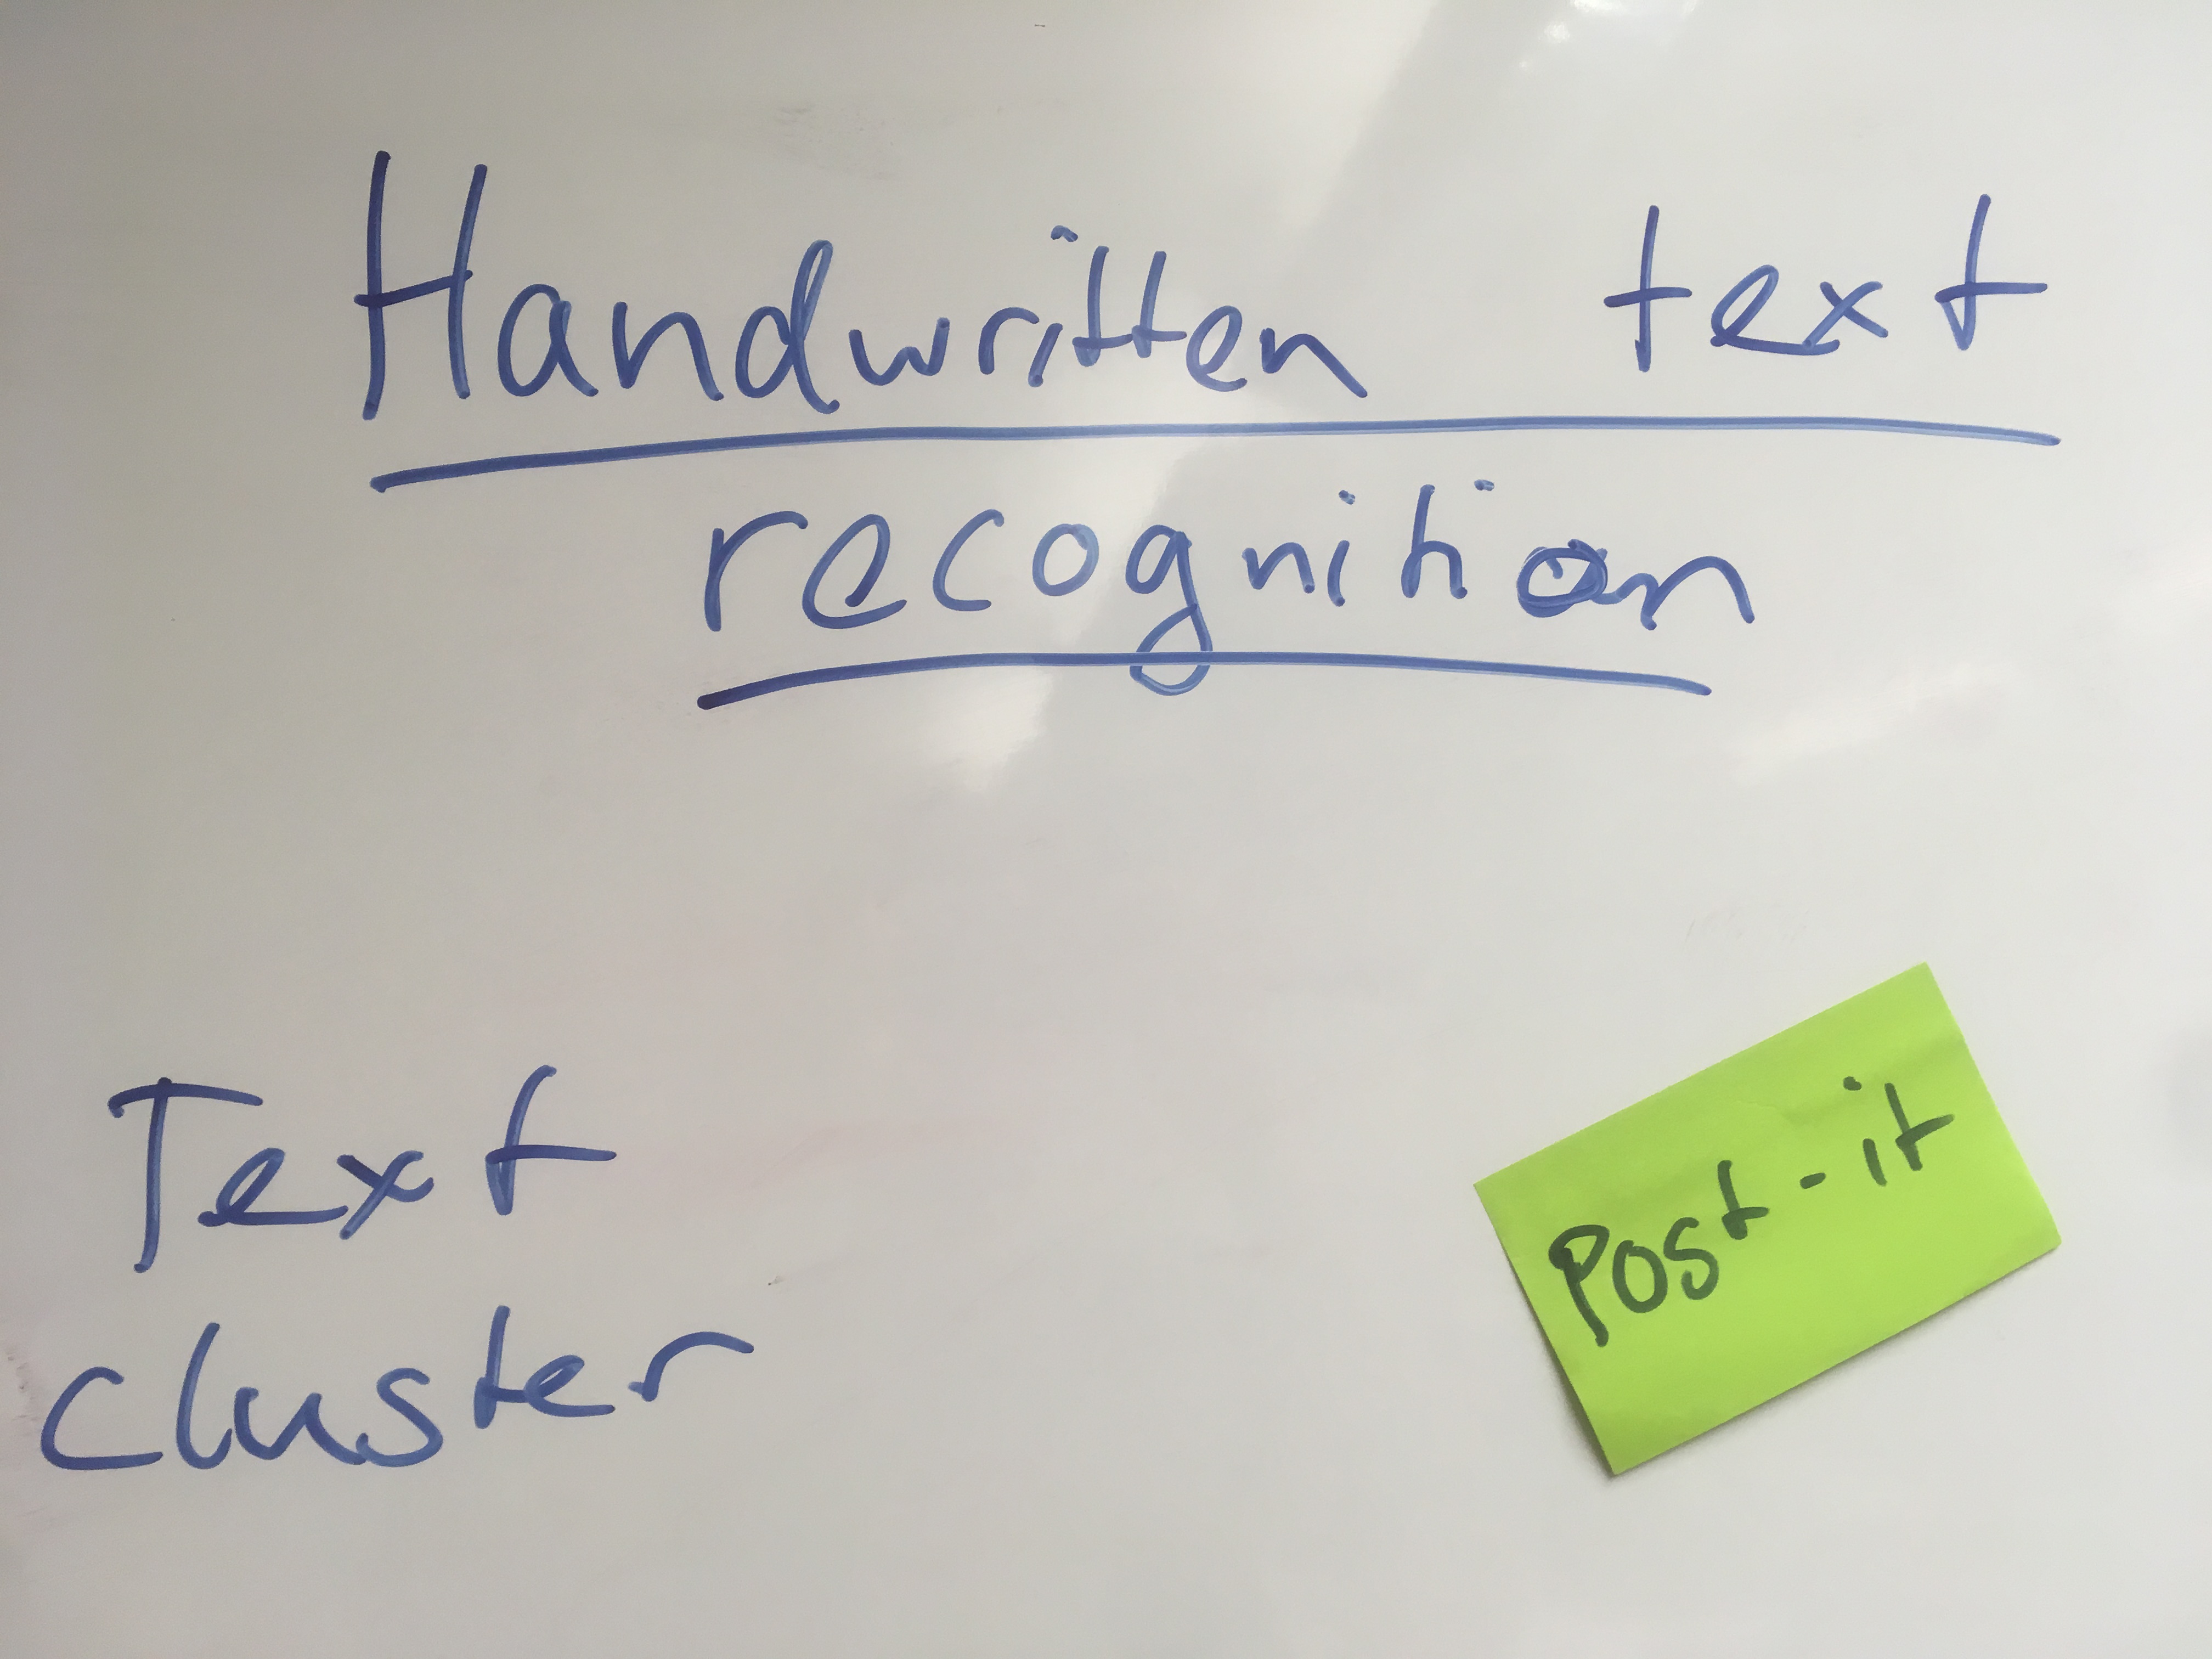 Handwritten text
recognition
Text
cluster
Post-it